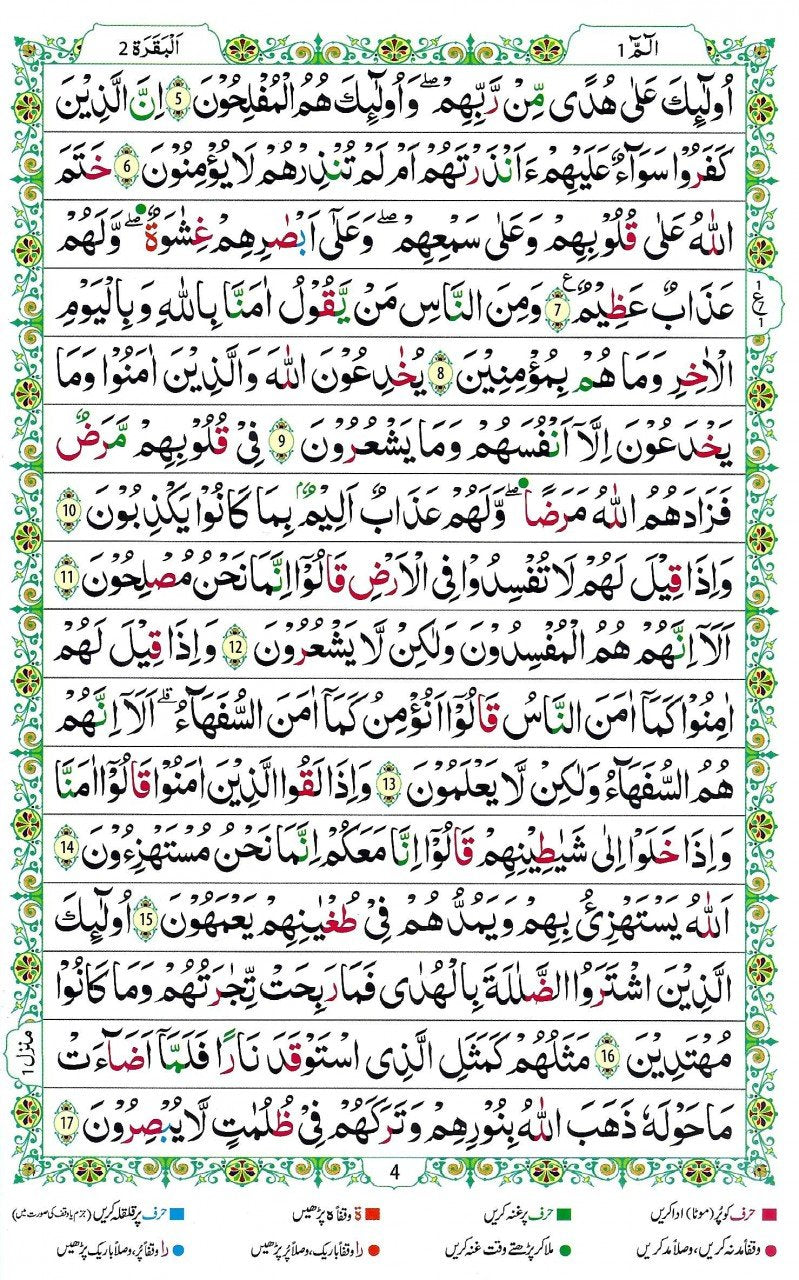 الٓمّٓ 1
اَلْبَقَرَة 2
اُولٰٓئِكَ عَلٰى هُدًى مِّنْ رَّبِّهِمْ ۖ وَاُولٰٓئِكَ هُمُ الْمُفْلِحُوْنَ 5 اِنَّ الَّذِيْنَ
كَفَرُوْا سَوَآءٌ عَلَيْهِمْ ءَاَنْذَرْتَهُمْ اَمْ لَمْ تُنْذِرْهُمْ لَا يُؤْمِنُوْنَ 6 خَتَمَ
اللّٰهُ عَلٰى قُلُوْبِهِمْ وَعَلٰى سَمْعِهِمْ ۖ وَعَلٰٓى اَبْصٰرِهِمْ غِشٰوَةٌ ۖ وَّلَهُمْ
عَذَابٌ عَظِيْمٌ 7 ع وَمِنَ النَّاسِ مَنْ يَّقُوْلُ اٰمَنَّا بِاللّٰهِ وَبِالْيَوْمِ
1 ع 7 1
الْاٰخِرِ وَمَا هُمْ بِمُؤْمِنِيْنَ 8 يُخٰدِعُوْنَ اللّٰهَ وَالَّذِيْنَ اٰمَنُوْا وَمَا
يَخْدَعُوْنَ اِلَّآ اَنْفُسَهُمْ وَمَا يَشْعُرُوْنَ 9 فِيْ قُلُوْبِهِمْ مَّرَضٌ
فَزَادَهُمُ اللّٰهُ مَرَضًا ۖ وَّلَهُمْ عَذَابٌ اَلِيْمٌۢ بِمَا كَانُوْا يَكْذِبُوْنَ 10
وَاِذَا قِيْلَ لَهُمْ لَا تُفْسِدُوْا فِى الْاَرْضِ قَالُوْٓا اِنَّمَا نَحْنُ مُصْلِحُوْنَ 11
اَلَآ اِنَّهُمْ هُمُ الْمُفْسِدُوْنَ وَلٰكِنْ لَّا يَشْعُرُوْنَ 12 وَاِذَا قِيْلَ لَهُمْ
اٰمِنُوْا كَمَآ اٰمَنَ النَّاسُ قَالُوْٓا اَنُؤْمِنُ كَمَآ اٰمَنَ السُّفَهَآءُ ۗ اَلَآ اِنَّهُمْ
هُمُ السُّفَهَآءُ وَلٰكِنْ لَّا يَعْلَمُوْنَ 13 وَاِذَا لَقُوا الَّذِيْنَ اٰمَنُوْا قَالُوْٓا اٰمَنَّا
وَاِذَا خَلَوْا اِلٰى شَيٰطِيْنِهِمْ قَالُوْٓا اِنَّا مَعَكُمْ اِنَّمَا نَحْنُ مُسْتَهْزِءُوْنَ 14
اَللّٰهُ يَسْتَهْزِئُ بِهِمْ وَيَمُدُّهُمْ فِيْ طُغْيٰنِهِمْ يَعْمَهُوْنَ 15 اُولٰٓئِكَ
الَّذِيْنَ اشْتَرَوُا الضَّلٰلَةَ بِالْهُدٰى فَمَا رَبِحَتْ تِّجٰرَتُهُمْ وَمَا كَانُوْا
مُهْتَدِيْنَ 16 مَثَلُهُمْ كَمَثَلِ الَّذِى اسْتَوْقَدَ نَارًا فَلَمَّآ اَضَآءَتْ
منزل 1
مَا حَوْلَهٗ ذَهَبَ اللّٰهُ بِنُوْرِهِمْ وَتَرَكَهُمْ فِيْ ظُلُمٰتٍ لَّا يُبْصِرُوْنَ 17
4
حرف کو پُر (موٹا) ادا کریں حرف پر غنہ کریں ة وقفاً ہ پڑھیں حرف پر قلقلہ کریں (جزم یا وقف کی صورت میں)
وقفاً مد نہ کریں، وصلاً مد کریں ملا کر پڑھتے وقت غنہ کریں را وقفاً باریک، وصلاً پُر پڑھیں را وقفاً پُر، وصلاً باریک پڑھیں